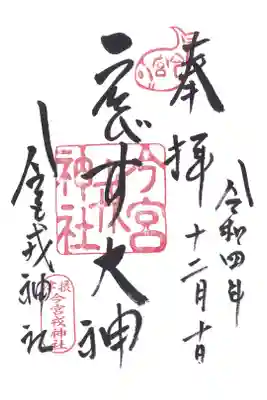 奉拝
令和四年
十二月十日
ゑびす大神
今宮戎神社
今宮戎神社
今宮戎神社